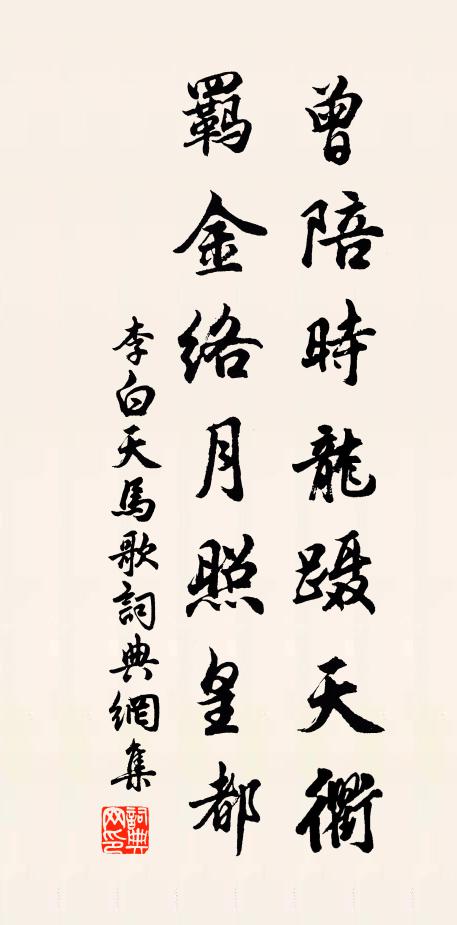 曾陪時龍蹑天衢
羁金络月照皇都
李白天馬歌詞典網集
詞典网印